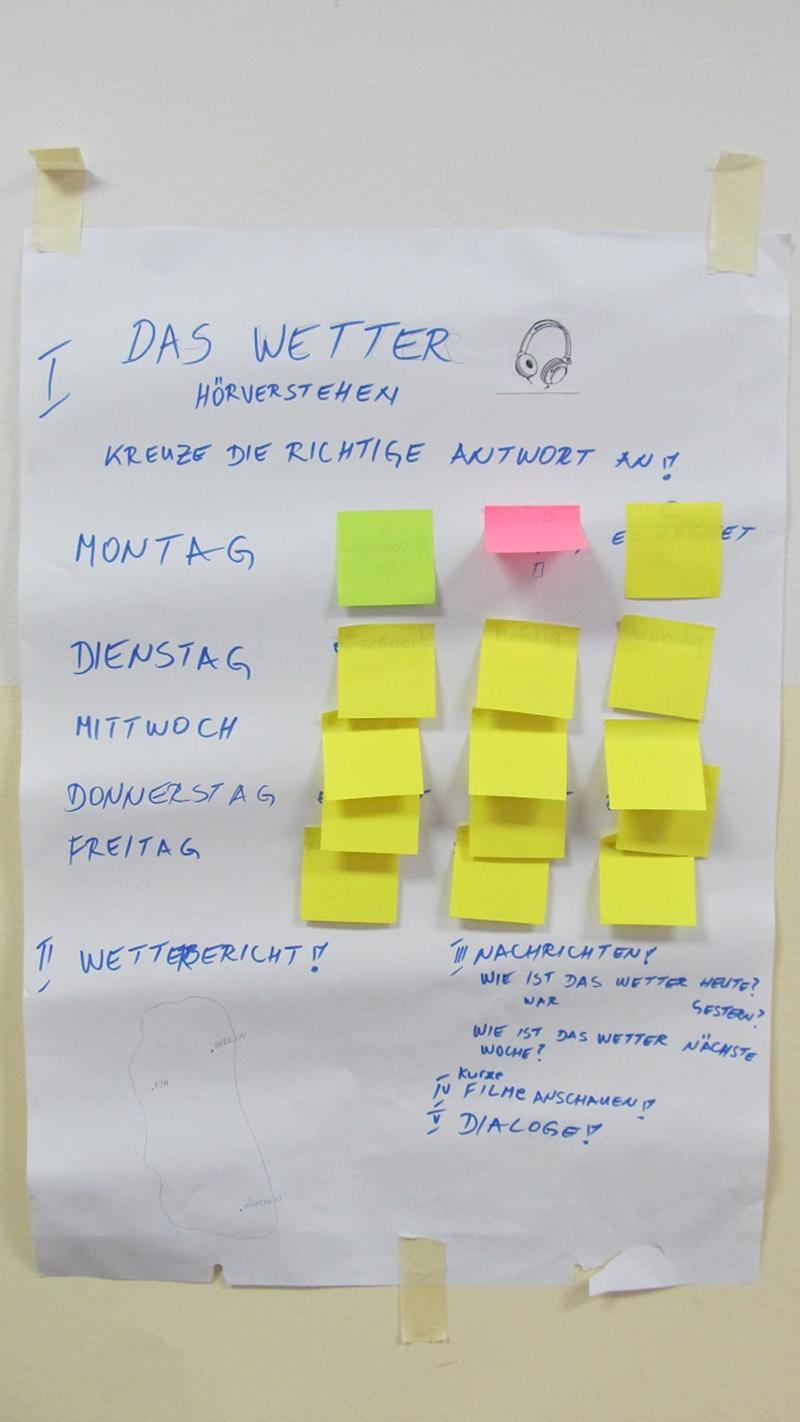 I DAS WETTER
HÖRVERSTEHEN
KREUZE DIE RICHTIGE ANTWORT AN!
MONTAG ES REGNET
DIENSTAG
MITTWOCH
DONNERSTAG
FREITAG
II WETTERBERICHT!
BERLIN
FFM
MÜNCHEN
III NACHRICHTEN!
WIE IST DAS WETTER HEUTE?
WAR GESTERN?
WIE IST DAS WETTER NÄCHSTE
WOCHE?
IV Kurze FILME ANSCHAUEN!
V DIALOGE!